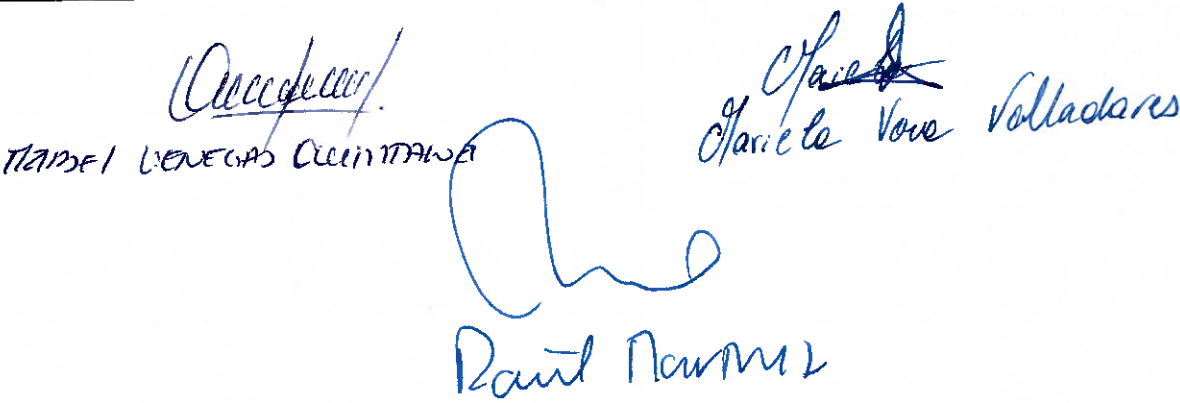 MABEL VENEGAS QUINTANA
Mariela Vova Valladares
Raúl Martinez